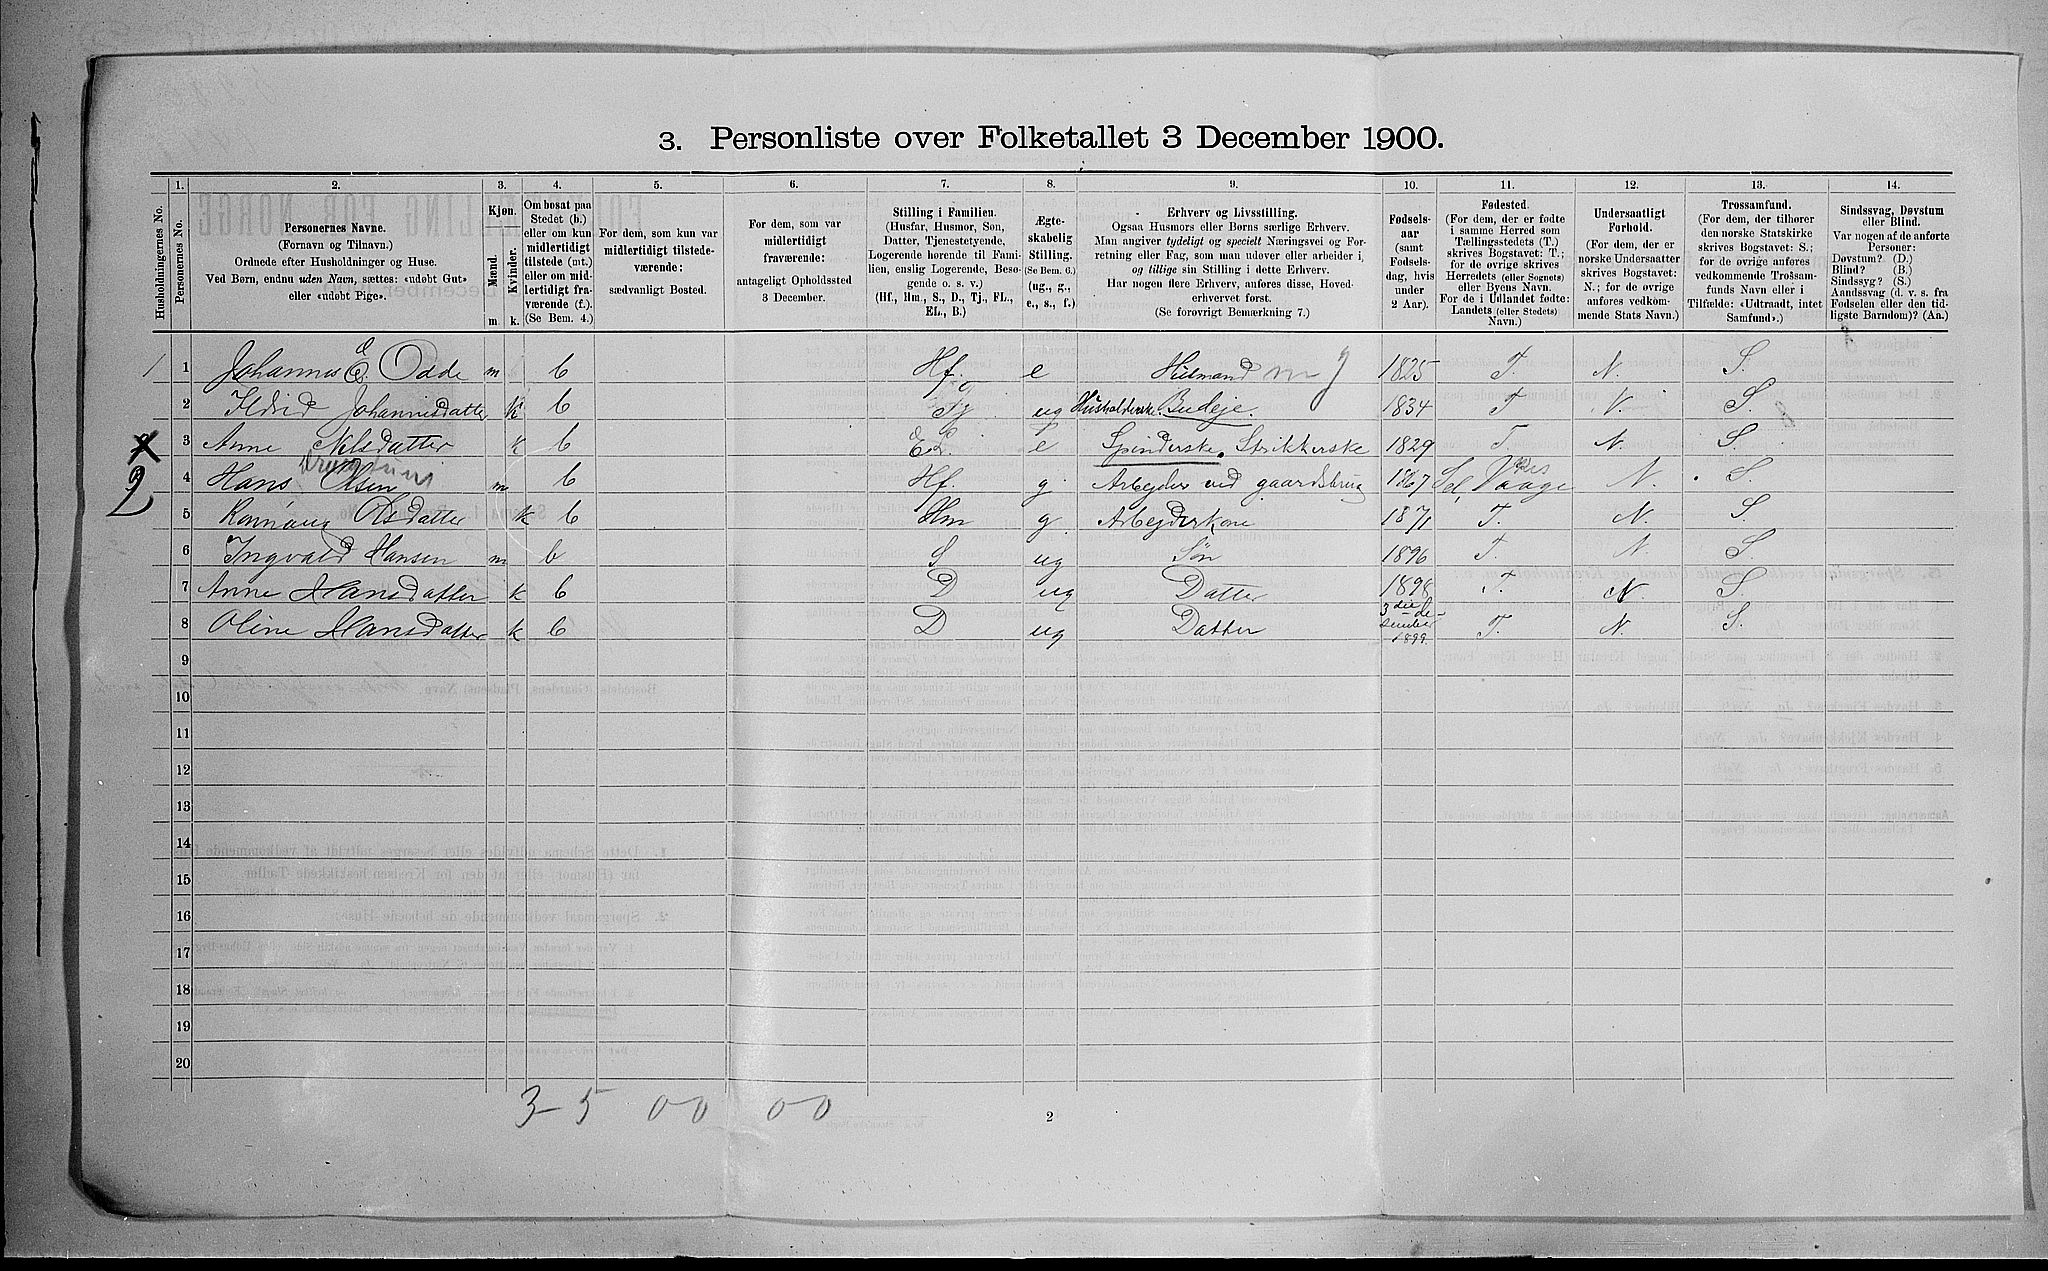 3. Personliste over Folketallet 3 December 1900.
1. 2. 3. 4. 5. 6. 7. 8. 9. 10. 11. 12. 13. 14.
Husholdningernes No.
Personernes No.
Personernes Navne.
(Fornavn og Tilnavn.)
Ordnede efter Husholdninger og Huse.
Ved Børn, endnu uden Navn, sættes: «udøbt Gut»
eller «udøbt Pige».
Kjøn.
Mænd.
Kvinder.
m. k.
Om bosat paa
Stedet (b.)
eller om kun
midlertidigt
tilstede (mt.)
eller om mid-
lertidigt fra-
værende (f.).
(Se Bem. 4.)
For dem, som kun var
midlertidigt tilstede-
værende:
sædvanligt Bosted.
For dem, som var
midlertidigt
fraværende:
antageligt Opholdssted
3 December.
Stilling i Familien.
(Husfar, Husmor, Søn,
Datter, Tjenestetyende,
Logerende hørende til Fami-
lien, enslig Logerende, Besø-
gende o. s. v.)
(Hf., Hm., S., D., Tj., FL.,
EL., B.)
Ægte-
skabelig
Stilling.
(Se Bem. 6.)
(ug., g.,
e., s., f.)
Erhverv og Livsstilling.
Ogsaa Husmors eller Børns særlige Erhverv.
Man angiver tydeligt og specielt Næringsvei og For-
retning eller Fag, som man udøver eller arbeider i,
og tillige sin Stilling i dette Erhverv.
Har nogen flere Erhverv, anføres disse, Hoved-
erhvervet først.
(Se forøvrigt Bemærkning 7.)
Fødsels-
aar
(samt
Fødsels-
dag, hvis
under
2 Aar).
Fødested.
(For dem, der er fødte
i samme Herred som
Tællingsstedets (T.)
skrives Bogstavet: T.;
for de øvrige skrives
Herredets (eller Sognets)
eller Byens Navn.
For de i Udlandet fødte:
Landets (eller Stedets)
Navn.)
Undersaatligt
Forhold.
(For dem, der er
norske Undersaatter
skrives Bogstavet:
N.; for de øvrige
anføres vedkom-
mende Stats Navn.)
Trossamfund.
(For dem, der tilhører
den norske Statskirke
skrives Bogstavet: S.;
for de øvrige anføres
vedkommende Trossam-
funds Navn eller i
Tilfælde: «Udtraadt, intet
Samfund».)
Sindssvag, Døvstum
eller Blind.
Var nogen af de anførte
Personer:
Døvstum? (D.)
Blind? (B.)
Sindssyg? (S.)
Aandssvag (d. v. s. fra
Fødselen eller den tid-
ligste Barndom)? (Aa.)
1 1 Johannes E. Odde m b Hf. e 1825 T. N. S.
2 Ildrid Johannisdatter k b Tj ug Husholderske. Budeje. 1834 T N. S.
3 Anne Nilsdatter k b EL. e Spinderske. Strikkerske 1829 T N. S.
2 4 Hans Olsen m b Hf. g Arbejder ved gaardsbrug 1867 Sel, Vaage N. S.
5 Olsdatter k b Hm g. Arbejderkone 1871 T. N. S.
6 Ingvald Hansen m b S ug Søn 1896 T. N S.
7 Anne Hansdatter k b D ug Datter 1898 T. N S.
8 Oline Hansdatter k b D ug Datter 3die desember 1899. T. N. S.
9
10
11
12
13
14
15
16
17
18
19
20
3-5 00 00
2